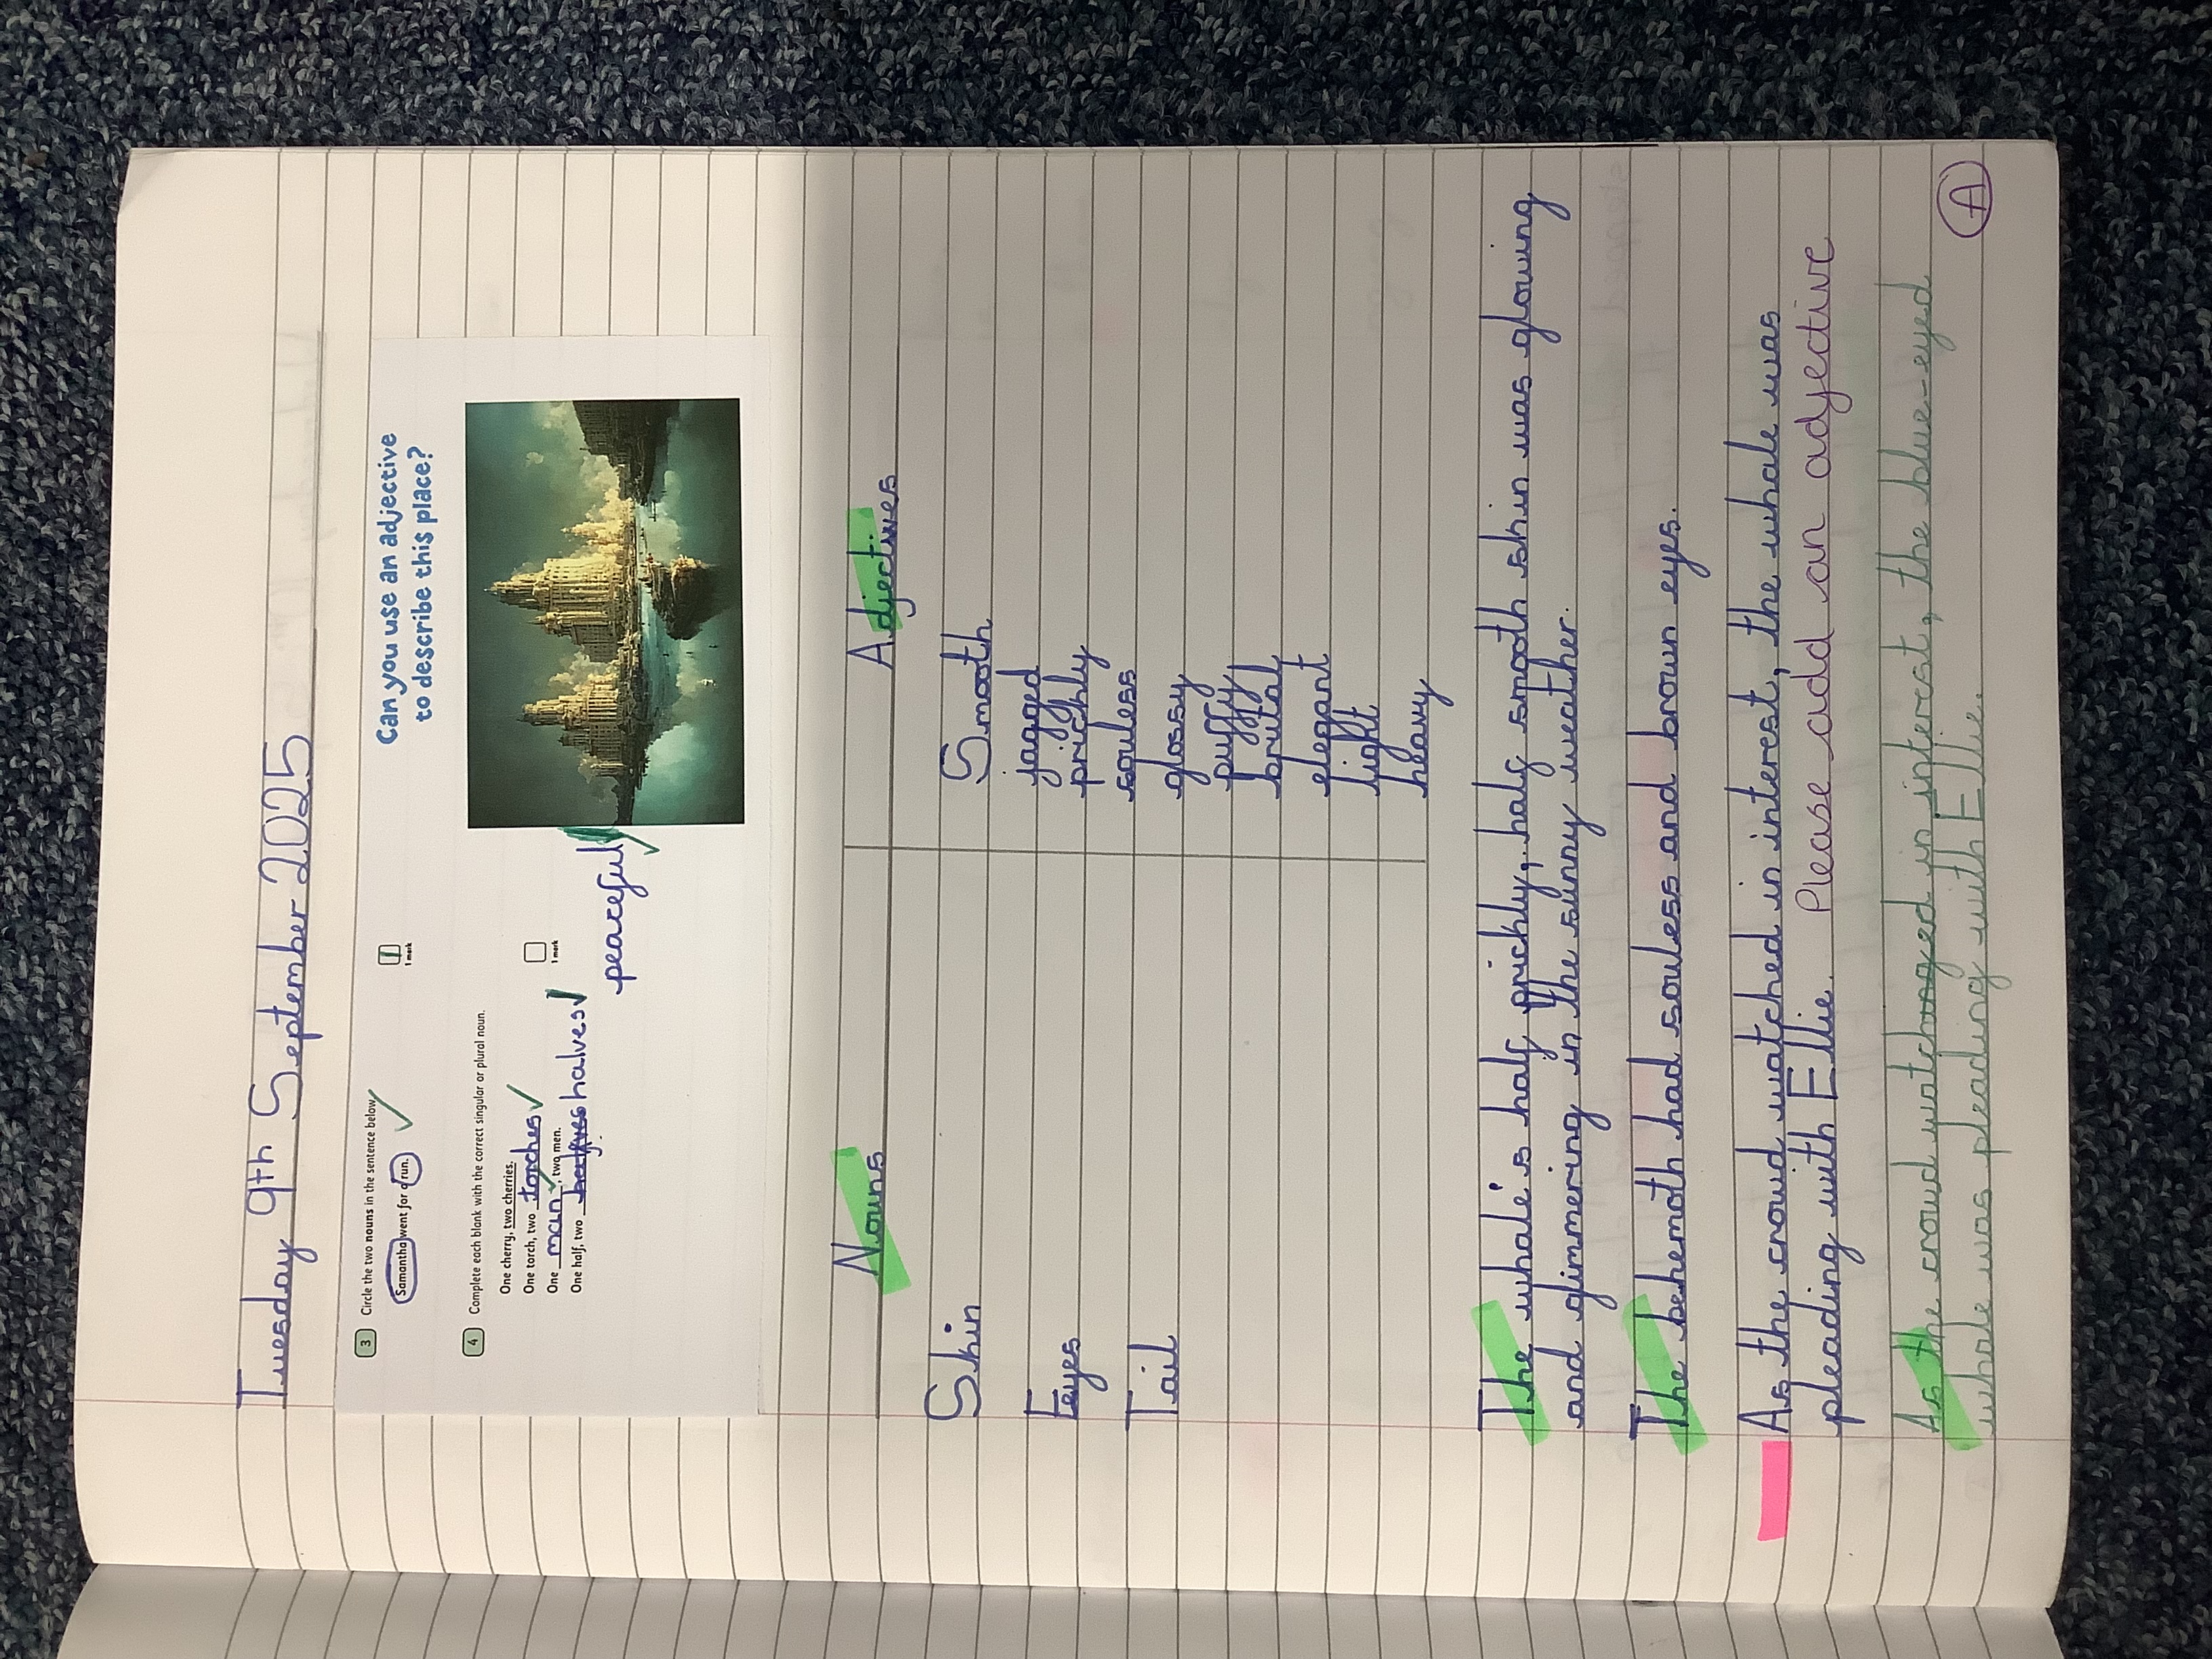 Tuesday 9th September 2025
3 Circle the two nouns in the sentence below.
Samantha went for a run.
1
1 mark
4 Complete each blank with the correct singular or plural noun.
One cherry, two cherries.
One torch, two torches
One man, two men.
One half, two halves
1 mark
Can you use an adjective
to describe this place?
peaceful
Nouns Adjectives
Skin Smooth
Eyes jagged
prickly
Tail souless
glossy
puffy
brutal
elegant
light
heavy
The whale's half prickly, half smooth skin was glowing
and glimmering in the sunny weather.
The behemoth had souless and brown eyes.
As the crowd watched in interest, the whale was
pleading with Ellie. Please add an adjective
As the crowd watched in interest, the blue-eyed
whale was pleading with Ellie.
A